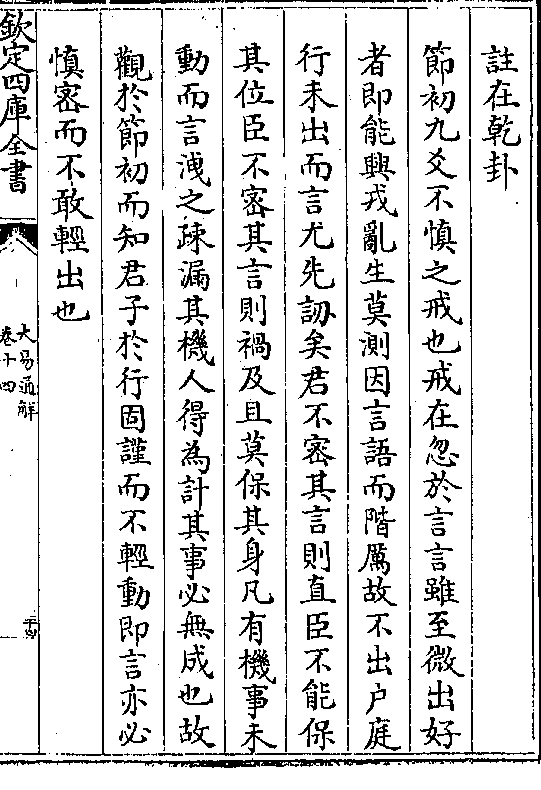 註在乾卦
節初九爻不慎之戒也戒在忽於言言雖至微出好
者即能興戎亂生莫測因言語而階厲故不出户庭
行未出而言尤先訒矣君不密其言則直臣不能保
其位臣不密其言則禍及且莫保其身凡有機事未
動而言洩之疎漏其機人得為計其事必無成也故
觀於節初而知君子於行固謹而不輕動即言亦必
慎密而不敢輕出也
欽定四庫全書
大易通解
卷十四